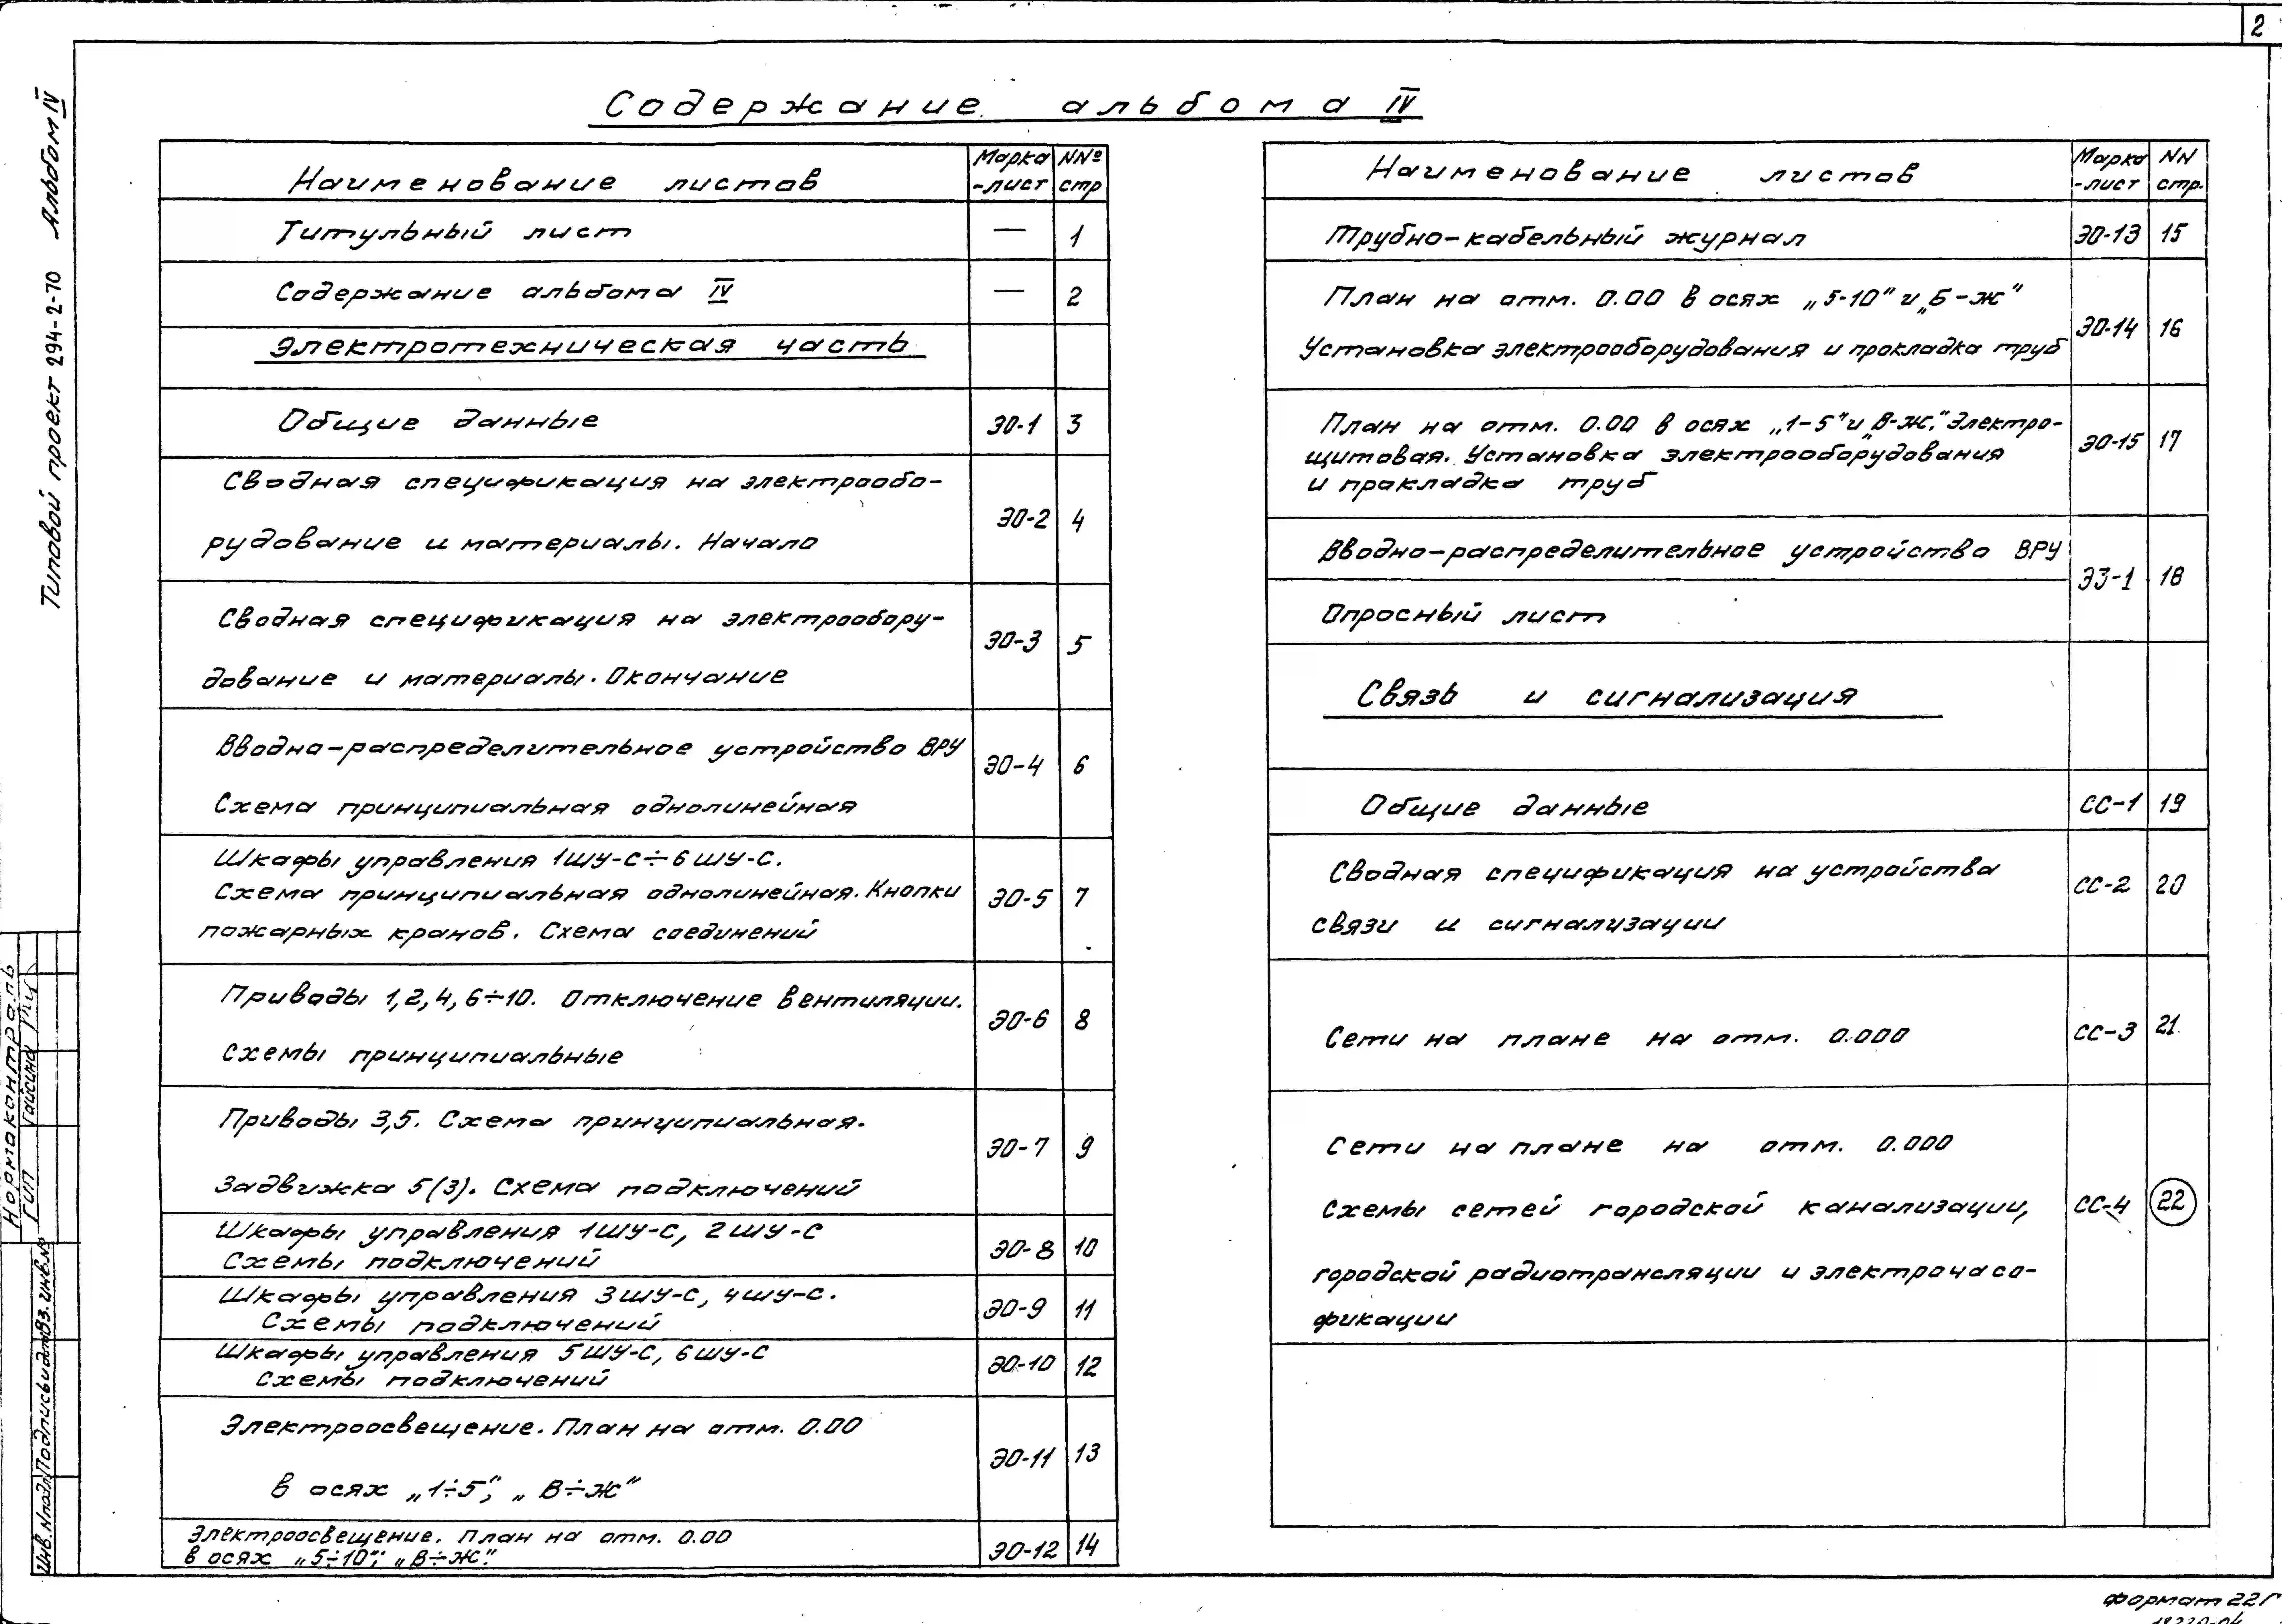 2
Содержание альбома IV
Типовой проект 294-2-70 Альбом IV
Наименование листов
Марка
-лист
NNº
стр
Титульный лист — 1
Содержание альбома IV — 2
Электротехническая часть
Общие данные ЭО-1 3
Сводная спецификация на электрообо-
рудование и материалы. Начало
ЭО-2 4
Сводная спецификация на электрообору-
дование и материалы. Окончание
ЭО-3 5
Вводно-распределительное устройство ВРУ
Схема принципиальная однолинейная
ЭО-4 6
Шкафы управления 1ШУ-С÷6ШУ-С.
Схема принципиальная однолинейная. Кнопки
пожарных кранов. Схема соединений
ЭО-5 7
Приводы 1,2,4,6÷10. Отключение вентиляции.
Схемы принципиальные
ЭО-6 8
Приводы 3,5. Схема принципиальная.
Задвижка 5(3). Схема подключений
ЭО-7 9
Шкафы управления 1ШУ-С, 2ШУ-С
Схемы подключений
ЭО-8 10
Шкафы управления 3ШУ-С, 4ШУ-С.
Схемы подключений
ЭО-9 11
Шкафы управления 5ШУ-С, 6ШУ-С
Схемы подключений
ЭО-10 12
Электроосвещение. План на отм. 0.00
в осях „1÷5", „В÷Ж"
ЭО-11 13
Электроосвещение. План на отм. 0.00
в осях „5÷10"; „В÷Ж".
ЭО-12 14
Наименование листов
Марка
-лист
NN
стр.
Трубно-кабельный журнал ЭО-13 15
План на отм. 0.00 в осях „5-10" и „Б-Ж"
Установка электрооборудования и прокладка труб
ЭО-14 16
План на отм. 0.00 в осях „1-5" и „В-Ж." Электро-
щитовая. Установка электрооборудования
и прокладка труб
ЭО-15 17
Вводно-распределительное устройство ВРУ
Опросный лист
ЭЗ-1 18
Связь и сигнализация
Общие данные СС-1 19
Сводная спецификация на устройства
связи и сигнализации
СС-2 20
Сети на плане на отм. 0.000 СС-3 21
Сети на плане на отм. 0.000
Схемы сетей городской канализации,
городской радиотрансляции и электрочасо-
фикации
СС-4 22
Нормоконтроль
ГИП Гайсина
Инв.№подл. Подпись и дата Вз. инв.№
Формат 22Г